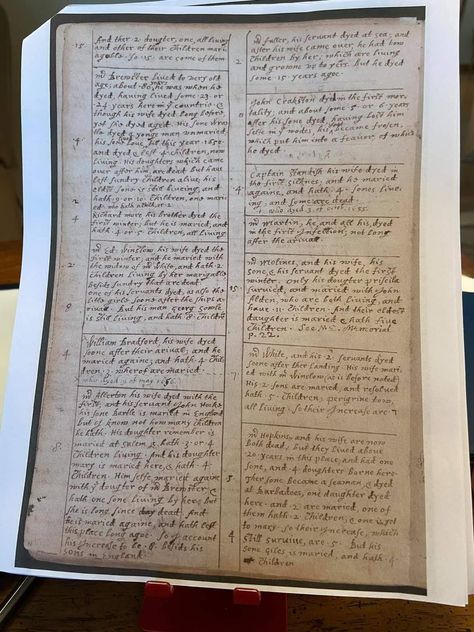 15
And ther 2 doughter, one, all living
and other of their Children mari
agable. So 15 are come of them
mr Brewster lived to very old
age; about 80. years he was when he
dyed, having lived some 23. or
24. years here in ye countrie. &
though his wife dyed long before
yet she dyed aged. His sone wras
tle dyed a yonge man unmaried;
4
his sone Love, till this year 1650.
and dyed & left. 4. children, now
living. His doughters which came
over after him, are dead. but have
left sundry Children alive; his
eldst sone is still liveing, and
2
hath 9. or 10. Children, one maried
Richard more his brother dyed the
4
first winter; but he is maried, and
hath 4. or 5. Children, all living
mr Ed: Winslow his wife dyed the
first winter; and he maried with
2
the widow of mr White, and hath. 2.
Children living by her marigable
besids sundry that are dead.
one of his servants dyed, as also the
litle girle soone after the ships a
8
rivall. But his man Georg Sowle
is still living, and hath 8. Childre
William Bradford, his wife dyed
soone after their arivall; and he
4
maried againe; and hath. 4. Chil
dren. 3. wherof are maried.
who dyed 9 of may 1657.
mr Allerton his wife dyed with the
first, and his servant John Hooke.
his sone Bartle is maried in England
but I know not how many children
he hath. His doughter remember is
maried at Salem & hath. 3. or 4.
8
Children living. And his doughter
mary is maried here, & hath. 4.
Children. Him selfe maried againe
with ye doughter of mr Brewster, &
hath one sone living by here, but
she is long since dead. And
he is maried againe, and hath left
this place long agoe. So I account
his Increase to be. 8. besids his
sons in England.
mr Fuller, his servant dyed at sea; and
after his wife came over, he had tow
2
children by her; which are living
and growne up to years. but he dyed
some 15. years agoe.
John Crakston dyed in the first mor
tality; and about some 5. or 6. years
after his sone dyed, having lost him
selfe in ye wodes, his feet became frosen,
which put him into a feavor, of which
he dyed.
Captain Standish his wife dyed in
the first sicknes; and he maried
4
againe, and hath. 4. sones live
ing, and some are dead.
who dyed 3 of octob. 1655.
mr Martin, he and all his, dyed
in the first Infection; not long
after the arivall.
mr Molines, and his wife, his
sone, & his servant dyed the first
winter. Only his doughter priscila
15
survied, and maried with John
Alden, who are both living, and
have. 11. Children. And their eldest
daughter is maried & hath five
Children. See N.E. Memorial
p. 22.
mr White, and his 2. servants dyed
soone after ther landing. His wife mari
7
ed with mr Winslow (as is before noted)
His 2. sons are maried, and resolved
hath. 5. Children; perigrine tow,
all living. So their Increase are 7
mr Hopkins, and his wife are now
both dead; but they lived above
20. years in this place, and had one
sone, and 4. doughters borne here.
5
Ther sone became a seaman, & dyed
at Barbadoes, one daughter dyed
here. and 2. are maried, one of
them hath. 2. Children, & one is yet
to mary. So their Increase, which
4
still survive, are. 5. But his
sone Giles is maried, and hath. 4.
Children